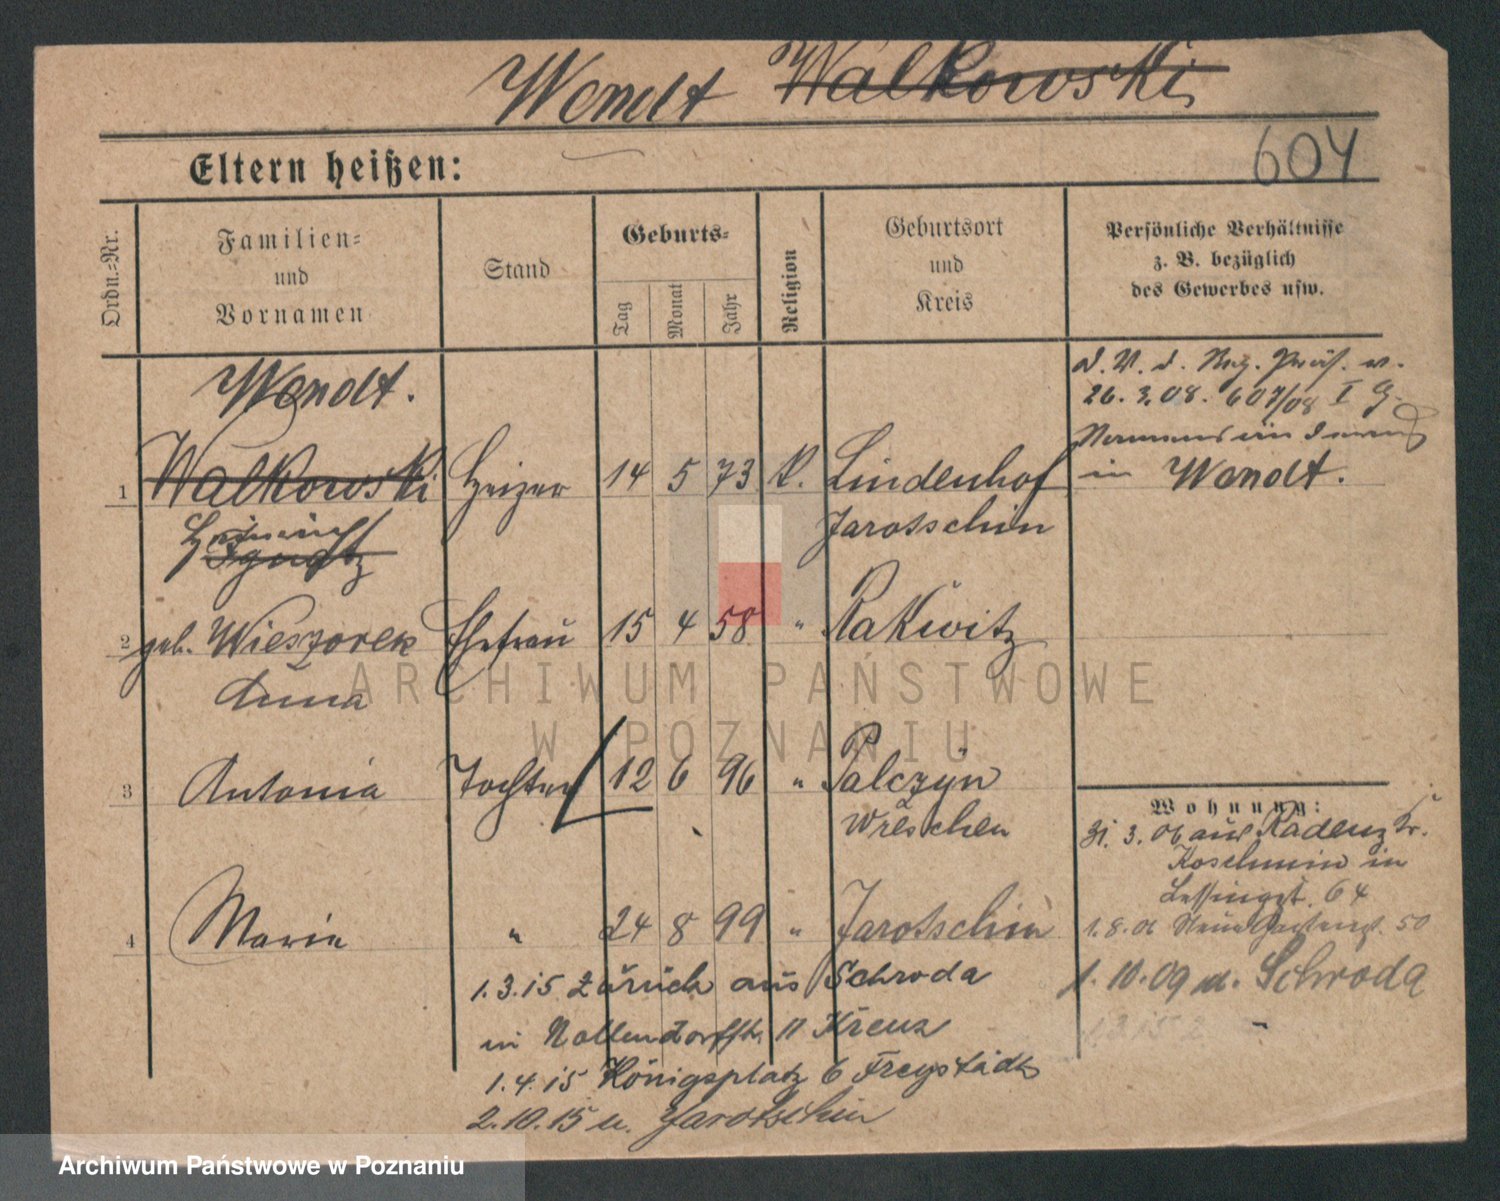 Wendt Walkowski
604
Eltern heißen:
Ordn.=Nr.
Familien=
und
Vornamen
Stand
Geburts=
Tag
Monat
Jahr
Religion
Geburtsort
und
Kreis
Persönliche Verhältnisse
z. B. bezüglich
des Gewerbes usw.
Wendt.
1 Walkowski Heizer 14 5 73 k. Lindenhof
Heinrich Jarotschin
Ignatz
2 geb. Wieszorek Ehefrau 15 4 58 " Rakwitz
Anna
3 Antonia Tochter 12 6 96 " Palczyn
Wreschen
4 Maria " 24 8 99 " Jarotschin
d. V. d. Reg. Präs. v.
26. 3. 08. 607/08 I G.
in Wendt.
Wohnung:
31. 3. 06 aus Radenz Kr.
Koschmin in
Lessingst. 64
1. 8. 06 Neue Gartenst. 50
1. 10. 09 n. Schroda
1.3.15 zurück aus Schroda
in Nollendorffstr. 11 Kreuz
1.4.15 Königsplatz 6 Freystadt
2.10.15 n. Jarotschin
ARCHIWUM PAŃSTWOWE
W POZNANIU
Archiwum Państwowe w Poznaniu